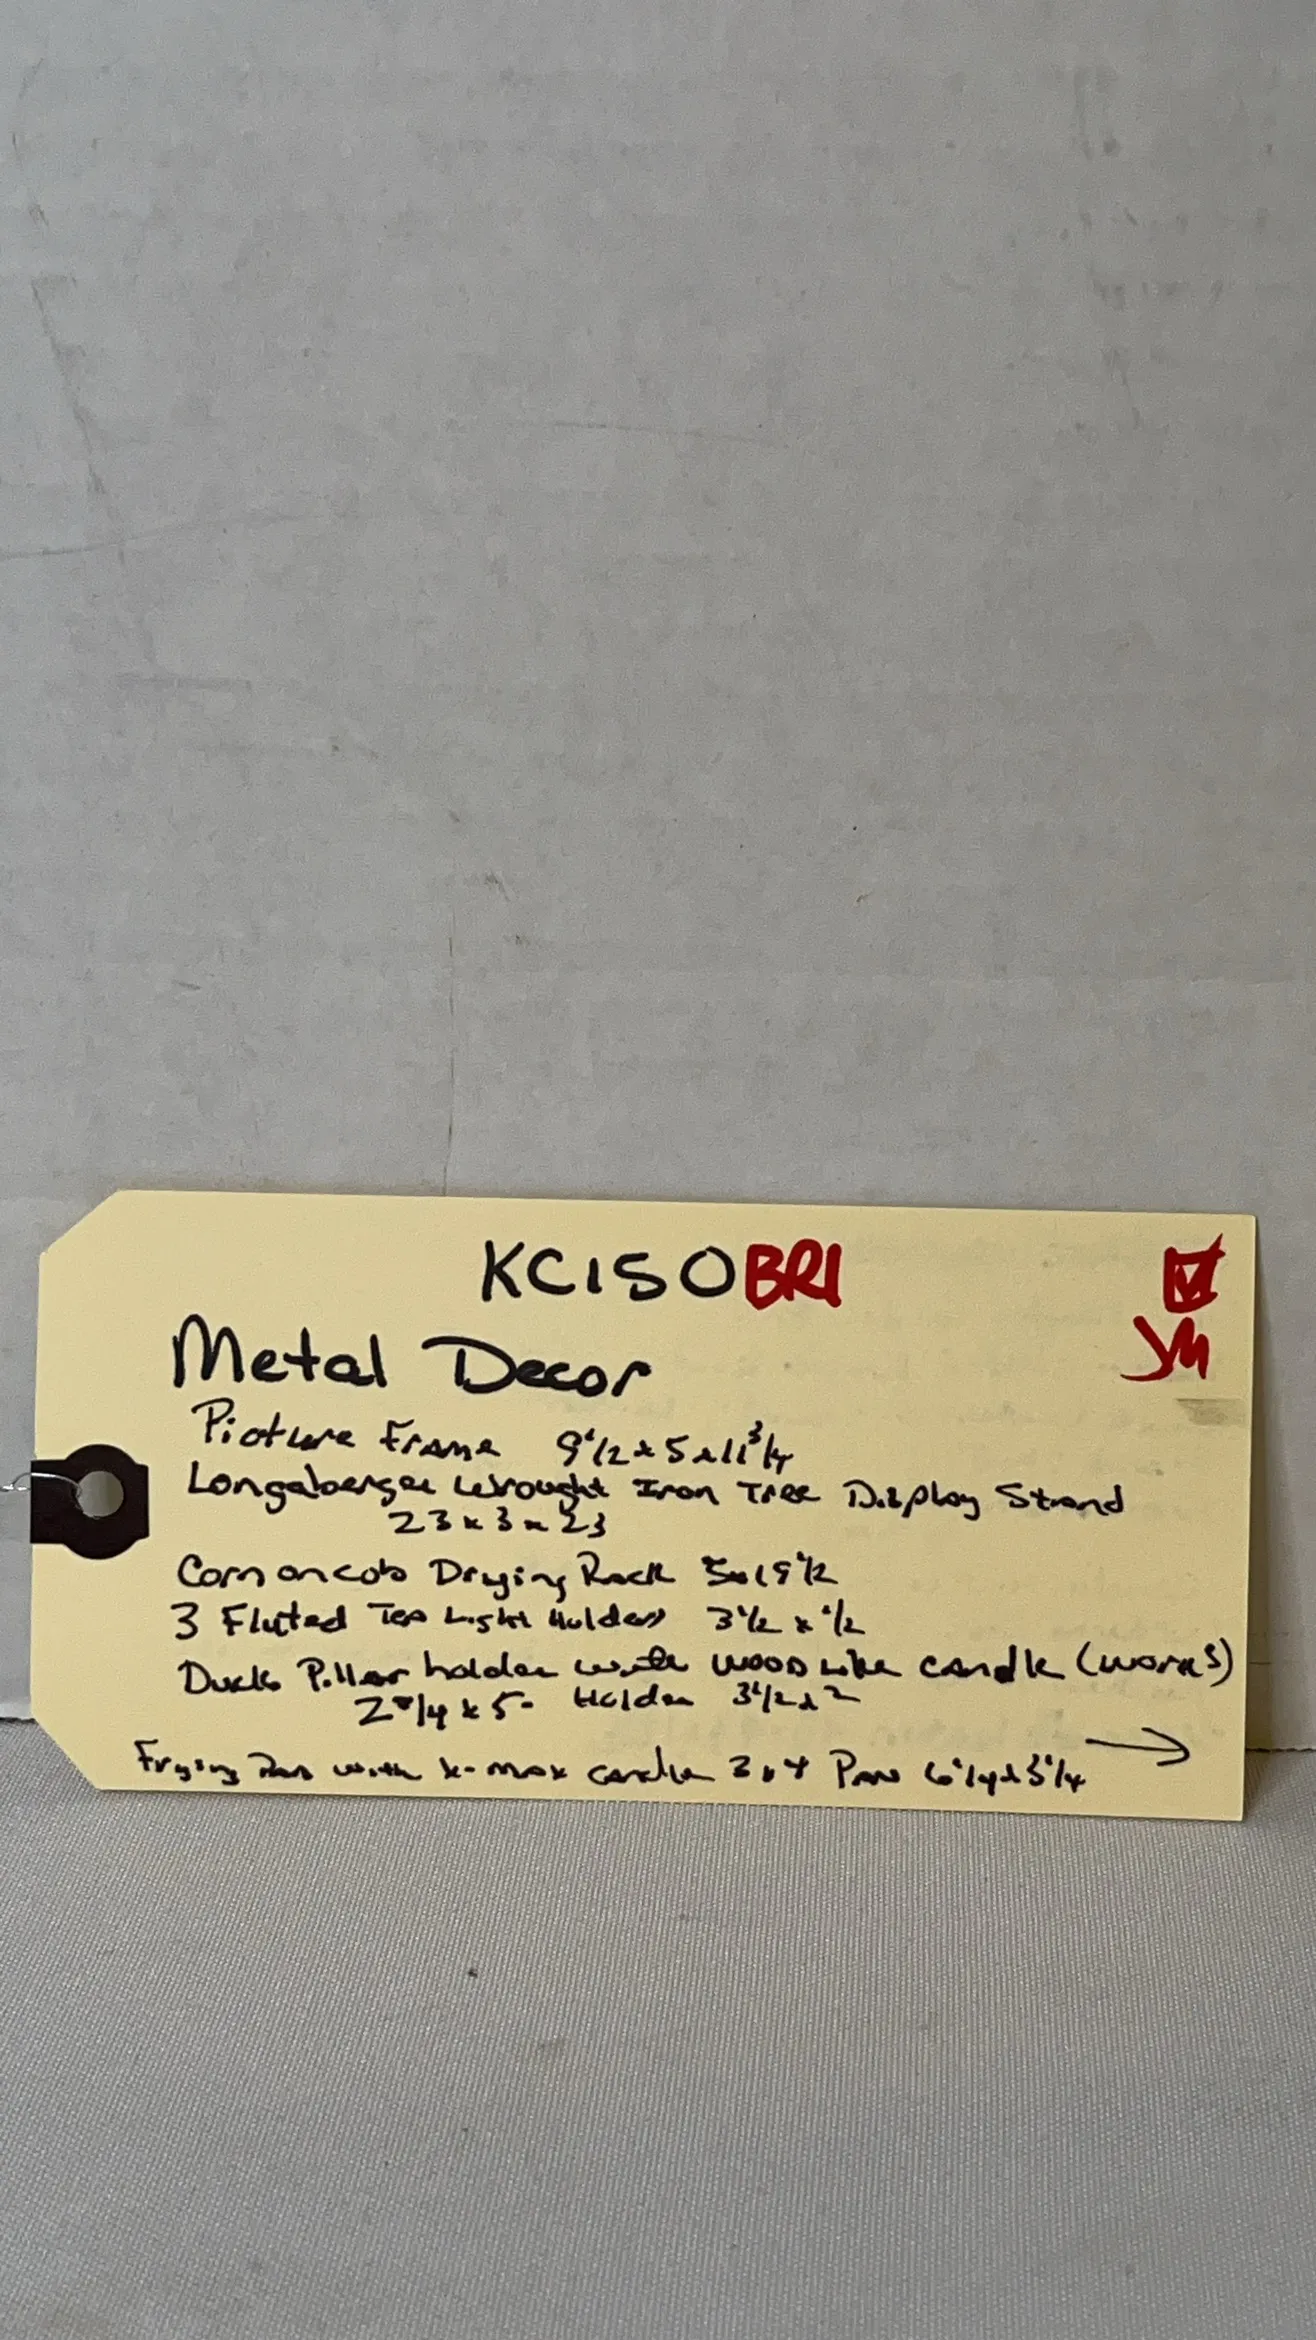 KC150BRI
JM
Metal Decor
Picture Frame 9 1/2 x 5 x 11 3/4
Longaberger Wrought Iron Tree Display Strand
23 x 3 x 23
Corn on cob Drying Rack 5x19 1/2
3 Fluted Tea Light Holders 3 1/2 x 1/2
Duck Pillar holder with wood like candle (works)
x 5- Holder 3 1/2 x 2
Frying Pan with candle 3 x 4 Pan 6 1/4 x 3 1/4